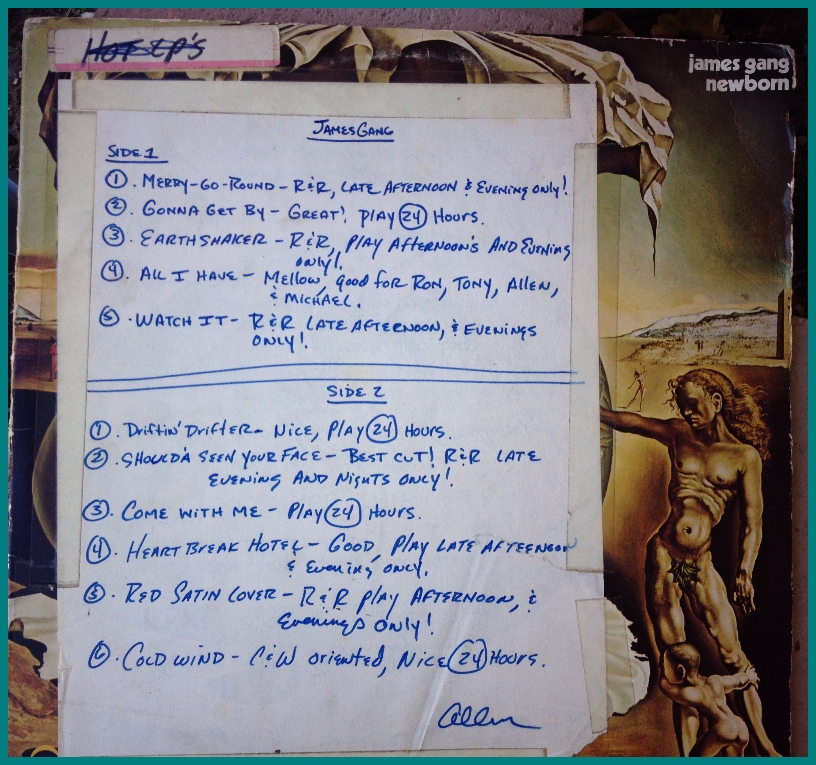 HOT LP'S
james gang
newborn
JAMES GANG
SIDE 1
1. MERRY-GO-ROUND - R&R, LATE AFTERNOON & EVENING ONLY!
2. GONNA GET BY - GREAT! PLAY 24 HOURS.
3. EARTHSHAKER - R&R, PLAY AFTERNOON'S AND EVENING
ONLY!
4. ALL I HAVE - MELLOW, good FOR RON, TONY, ALLEN,
& MICHAEL.
5. WATCH IT - R&R LATE AFTERNOON, & EVENINGS
ONLY!
SIDE 2
1. Driftin' Drifter - NICE, PLAY 24 HOURS.
2. SHOULD'A SEEN YOUR FACE - BEST CUT! R&R LATE
EVENING AND NIGHTS ONLY!
3. COME WITH ME - PLAY 24 HOURS.
4. HEART BREAK HOTEL - GOOD, PLAY LATE AFTEENOON
& EVENING ONLY.
5. RED SATIN LOVER - R&R PLAY AFTERNOON, &
EVENINGS ONLY!
6. COLD WIND - C&W oriented, NICE 24 HOURS.
Allen